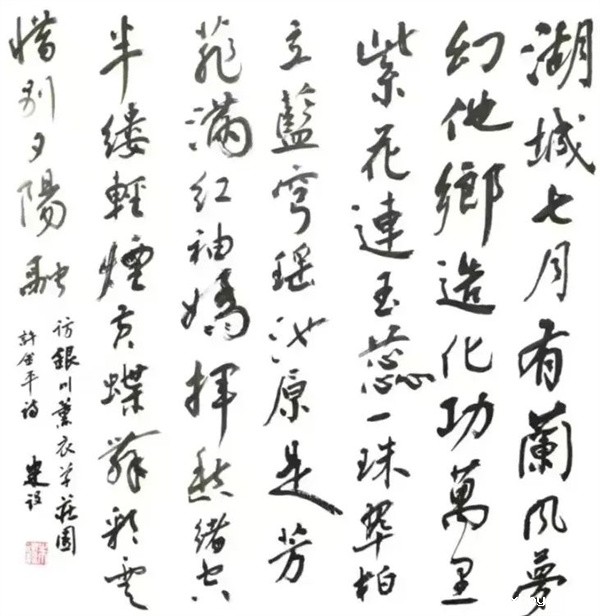 湖城七月有蘭风夢
幻他鄉造化功萬里
紫花連玉蕊一珠翠柏
立藍穹瑶池原是芳
菲滿红袖嬌揮愁緒空
半缕輕煙黄蝶舞彩雲
惜别夕陽融
访銀川薰衣草莊園
許金平詩